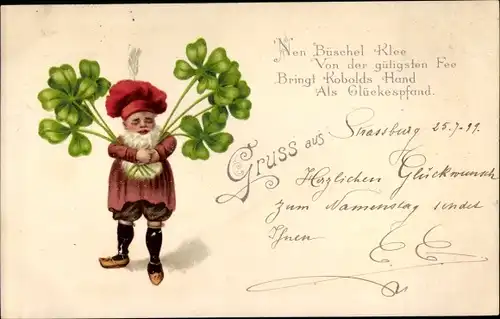 Nen Büschel Klee
Von der gütigsten Fee
Bringt Kobolds Hand
Als Glückespfand.
Gruss aus
Strassburg 25.7.99.
Herzlichen Glückwunsch
zum Namenstag sendet
Ihnen
E E